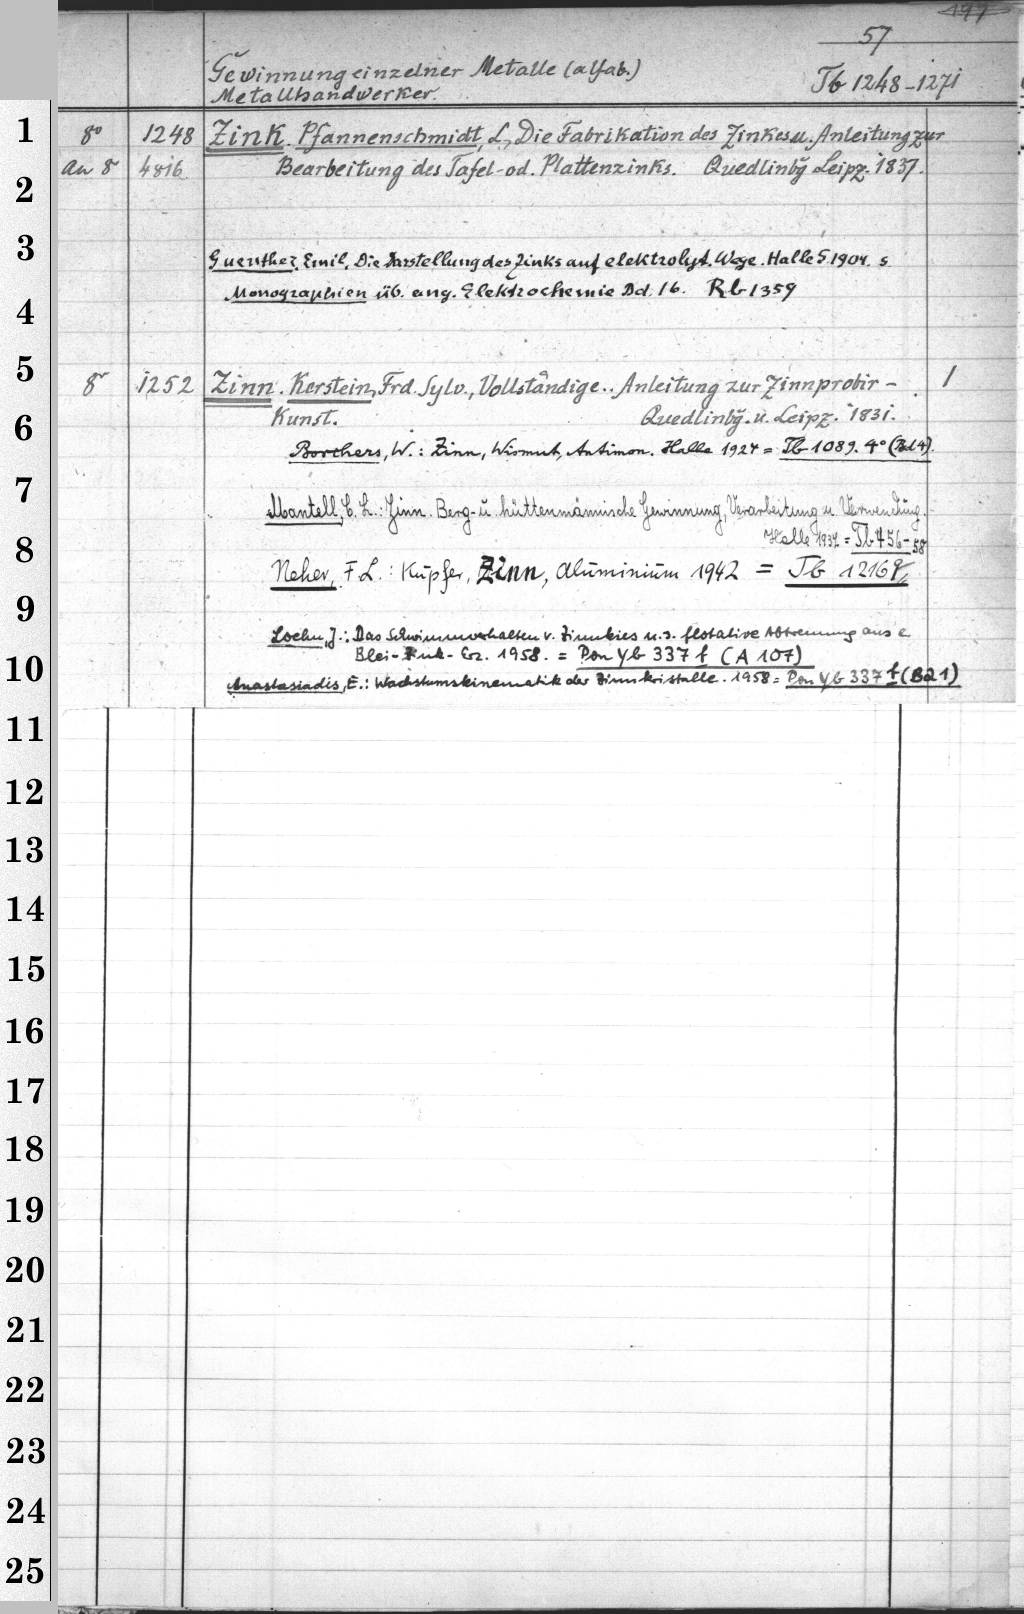 197
57
Gewinnung einzelner Metalle (alfab.)
Metallhandwerker.
Tb 1248-1271
1
8° 1248 Zink. Pfannenschmidt, L, Die Fabrikation des Zinkes u. Anleitung zur
2
an 8 4816 Bearbeitung des Tafel- od. Plattenzinks. Quedlinbg Leipz. 1837.
3
Guenther, Emil, Die Darstellung des Zinks auf elektrolyt. Wege. Halle S. 1904. s
4
Monographien üb. ang. Elektrochemie Bd. 16. Rb 1359
5
8° 1252 Zinn. Kerstein, Frd. Sylv., Vollständige.. Anleitung zur Zinnprobir- 1
6
Kunst. Quedlinbg. u. Leipz. 1831.
Borchers, W.: Zinn, Wismut, Antimon. Halle 1924 = Tb 1089. 4° (Bd 4).
7
Mantell, C. L.: Zinn. Berg- u. hüttenmännische Gewinnung, Verarbeitung u. Verwendung.
8
Halle 1937 = Tb 456-58
Neher, F. L.: Kupfer, Zinn, Aluminium 1942 = Tb 1216
9
Loehn, J.: Das Schwimmverhalten v. Zinnkies u. s. flotative Abtrennung aus e
10
Blei-Zink-Erz. 1958. = Pon Yb 337 f (A 107)
Anastasiadis, E.: Wachstumskinematik der Zinnkristalle. 1958 = Pon Yb 337 f (B21)
11
12
13
14
15
16
17
18
19
20
21
22
23
24
25